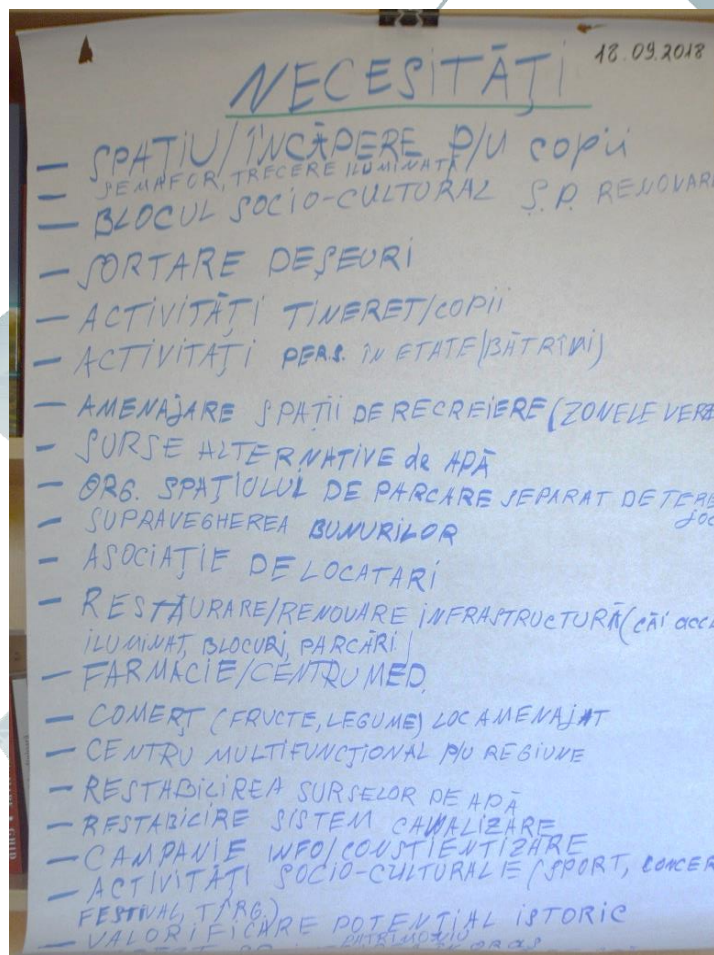 18.09.2018
NECESITĂȚI
— SPAȚIU/ÎNCĂPERE P/U copii
— SEMAFOR, TRECERE ILUMINATĂ
— BLOCUL SOCIO-CULTURAL Ș.P. RENOVARE
— SORTARE DEȘEURI
— ACTIVITĂȚI TINERET/COPII
— ACTIVITAȚI PERS. ÎN ETATE (BĂTRÎNI)
— AMENAJARE SPAȚII DE RECREIERE (ZONELE VERZ
— SURSE ALTERNATIVE de APĂ
— ORG. SPAȚIULUI DE PARCARE SEPARAT DE TERE
JOC
— SUPRAVEGHEREA BUNURILOR
— ASOCIAȚIE DE LOCATARI
— RESTAURARE/RENOVARE INFRASTRUCTURĂ (CĂI acce
ILUMINAT, BLOCURI, PARCĂRI)
— FARMACIE/CENTRU MED.
— COMERȚ (FRUCTE, LEGUME) LOC AMENAJAT
— CENTRU MULTIFUNCȚIONAL P/U REGIUNE
— RESTABILIREA SURSELOR DE APĂ
— RESTABILIRE SISTEM CANALIZARE
— CAMPANIE INFO/CONȘTIENTIZARE
— ACTIVITĂȚI SOCIO-CULTURALE (SPORT, CONCER
FESTIVAL, TÎRG.)
— VALORIFICARE POTENȚIAL ISTORIC
PATRIMONIU